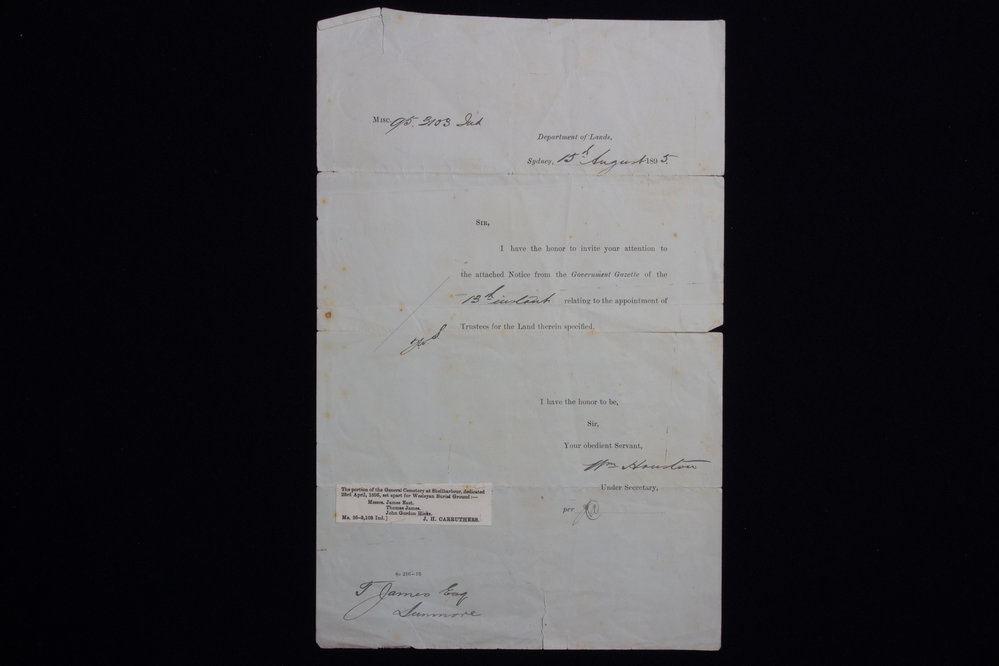 MISC. 95. 3103 Ind
Department of Lands,
Sydney, 15th August 1895.
SIR,
I have the honor to invite your attention to
the attached Notice from the Government Gazette of the
13th instant relating to the appointment of
Trustees for the Land therein specified.
I have the honor to be,
Sir,
Your obedient Servant,
Wm Houston
Under Secretary,
per
The portion of the General Cemetery at Shellharbour, dedicated
23rd April, 1895, set apart for Wesleyan Burial Ground :—
Messrs. James East.
Thomas James.
John Gordon Hicks.
Ms. 95-3,103 Ind.] J. H. CARRUTHERS.
6c 216-95
T James Esq
Dunmore